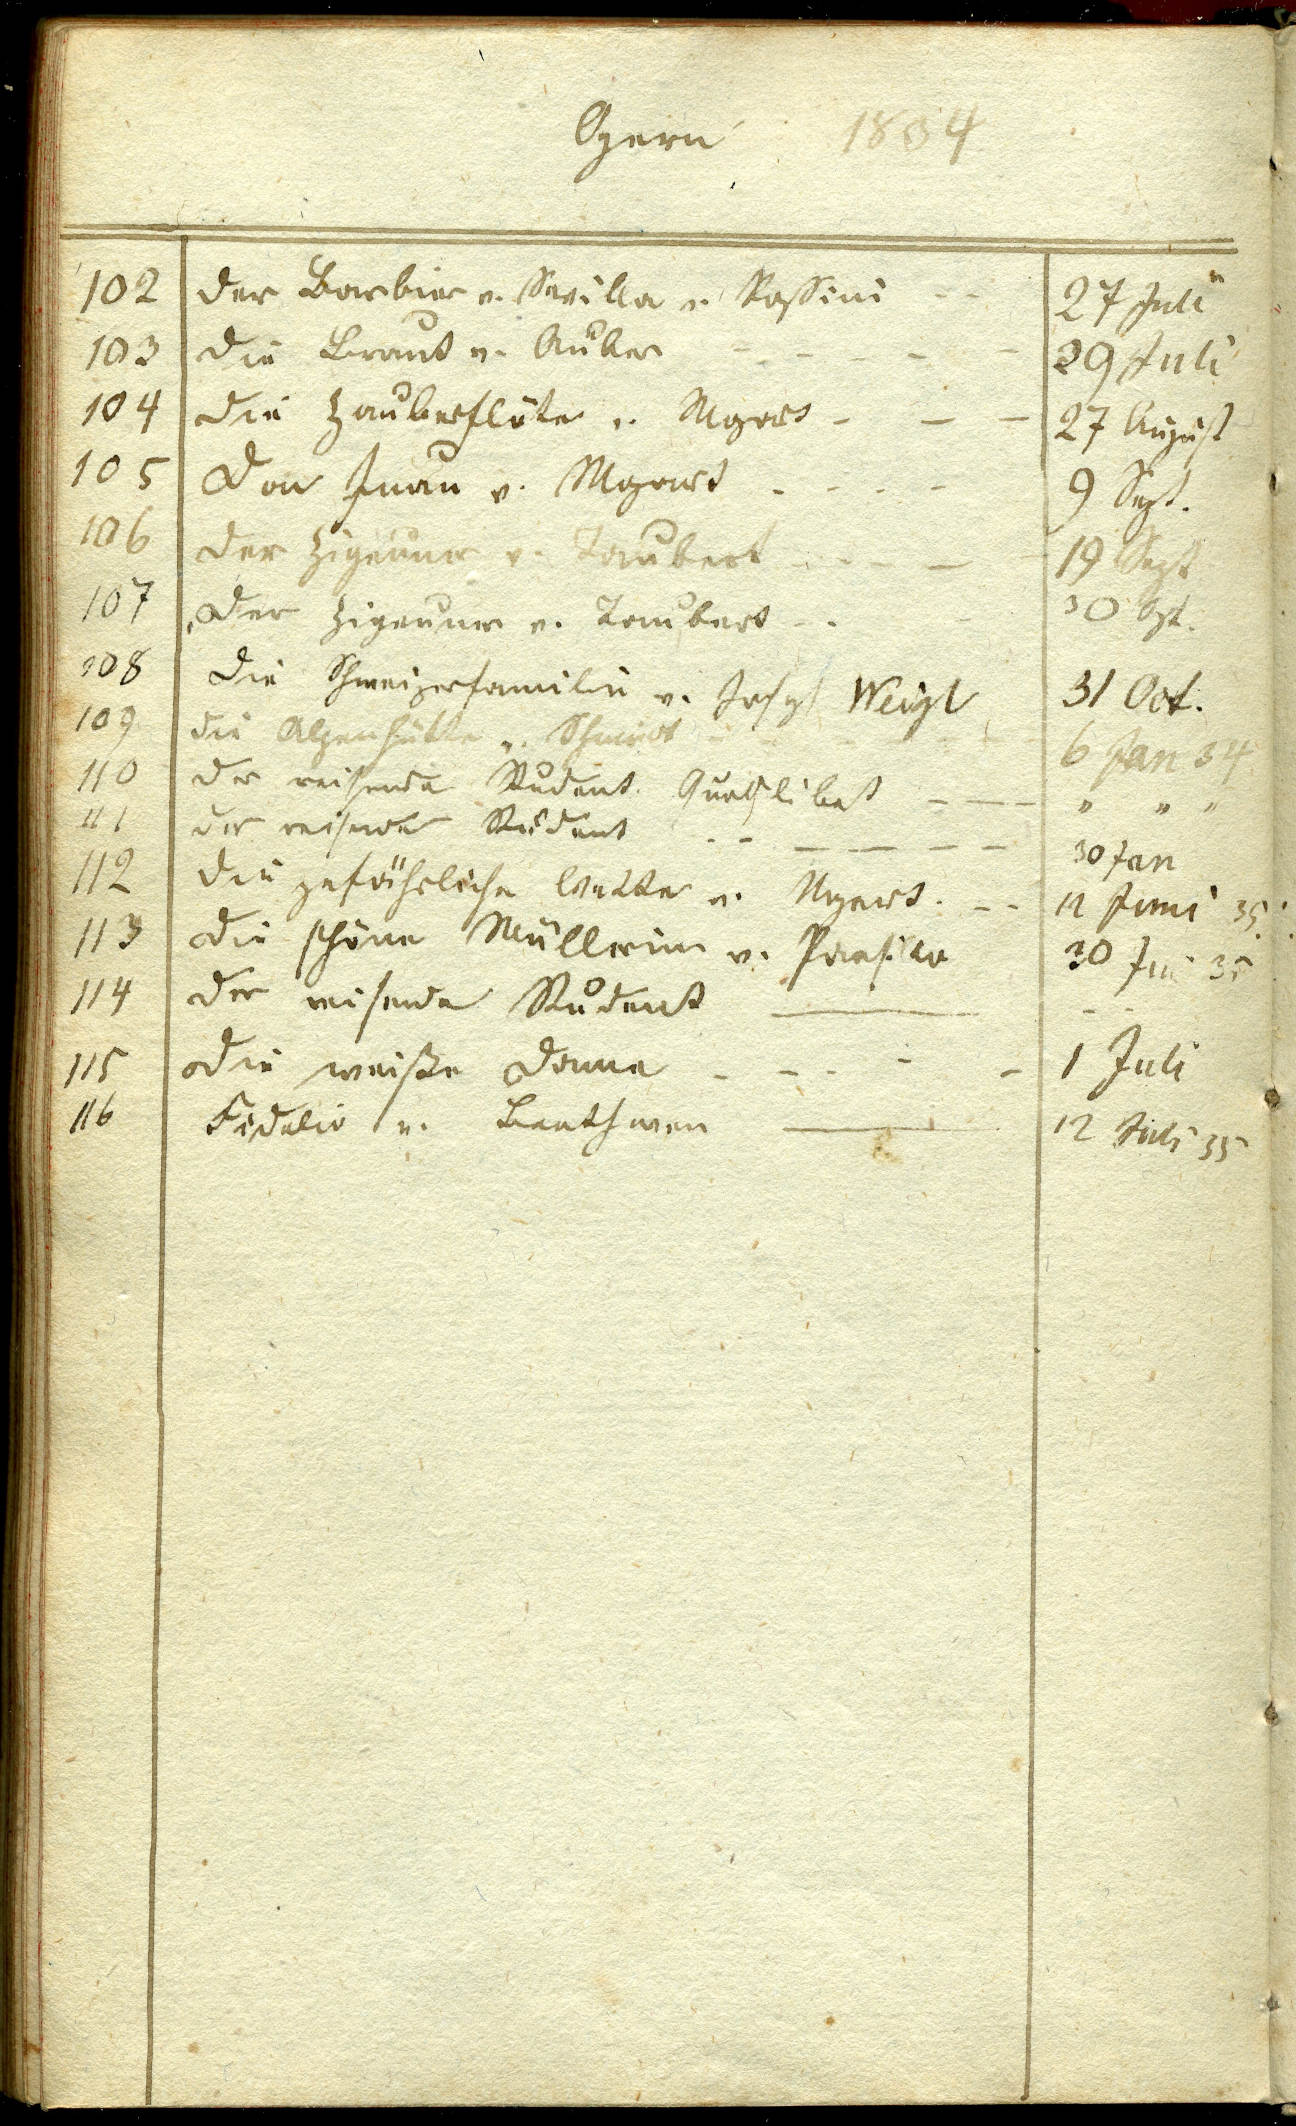 Opern 1834
102 Der Barbier v. Sevilla v. Rossini - - 27 Juli
103 Die Braut v. Auber - - - - - 29 Juli
104 Die Zauberflöte v. Mozart - - - 27 August
105 Don Juan v. Mozart - - - - 9 Sept.
106 Der Zigeuner v. Taubert - - - - 19 Sept
107 Der Zigeuner v. Taubert - - - 30 Spt.
108 Die Schweizerfamilie v. Joseph Weigl 31 Oct.
109 die Alpenhütte v. Schmidt - - - - 6 Jan 34
110 der reisende Student. Quodlibet - - - " " "
111 der reisende Student - - - - - - - 30 Jan
112 Die gefährliche Wette v. Mozart. - - 12 Juni 35.
113 Die schöne Müllerin v. Paesilo 30 Jui 35
114 Der reisende Student — - -
115 Die weiße Dame - - - - - 1 Juli
116 Fidelio v. Beethoven — 12 Juli 35